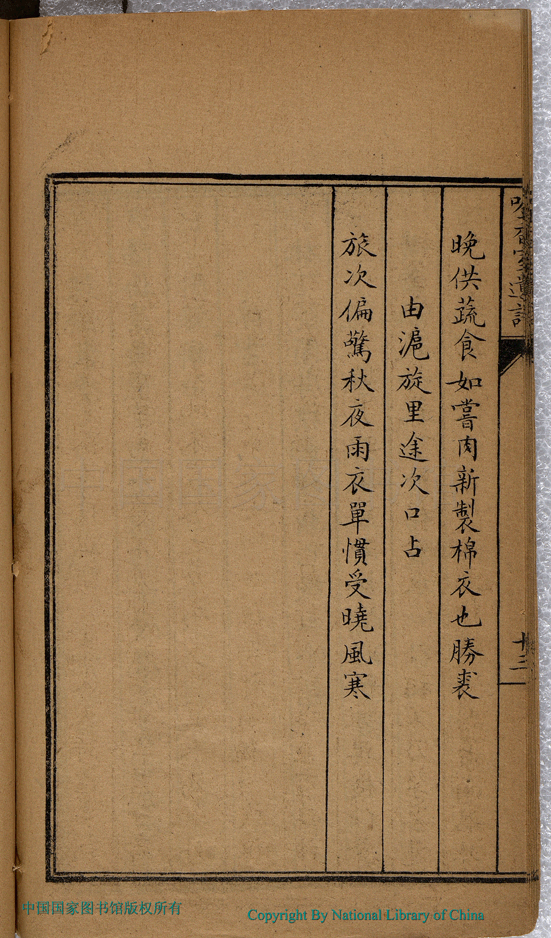 晚供蔬食如嘗肉新製棉衣也勝裘
由滬旋里途次口占
旅次偏驚秋夜雨衣單慣受曉風寒
廿三
中国国家图书馆版权所有
Copyright By National Library of China